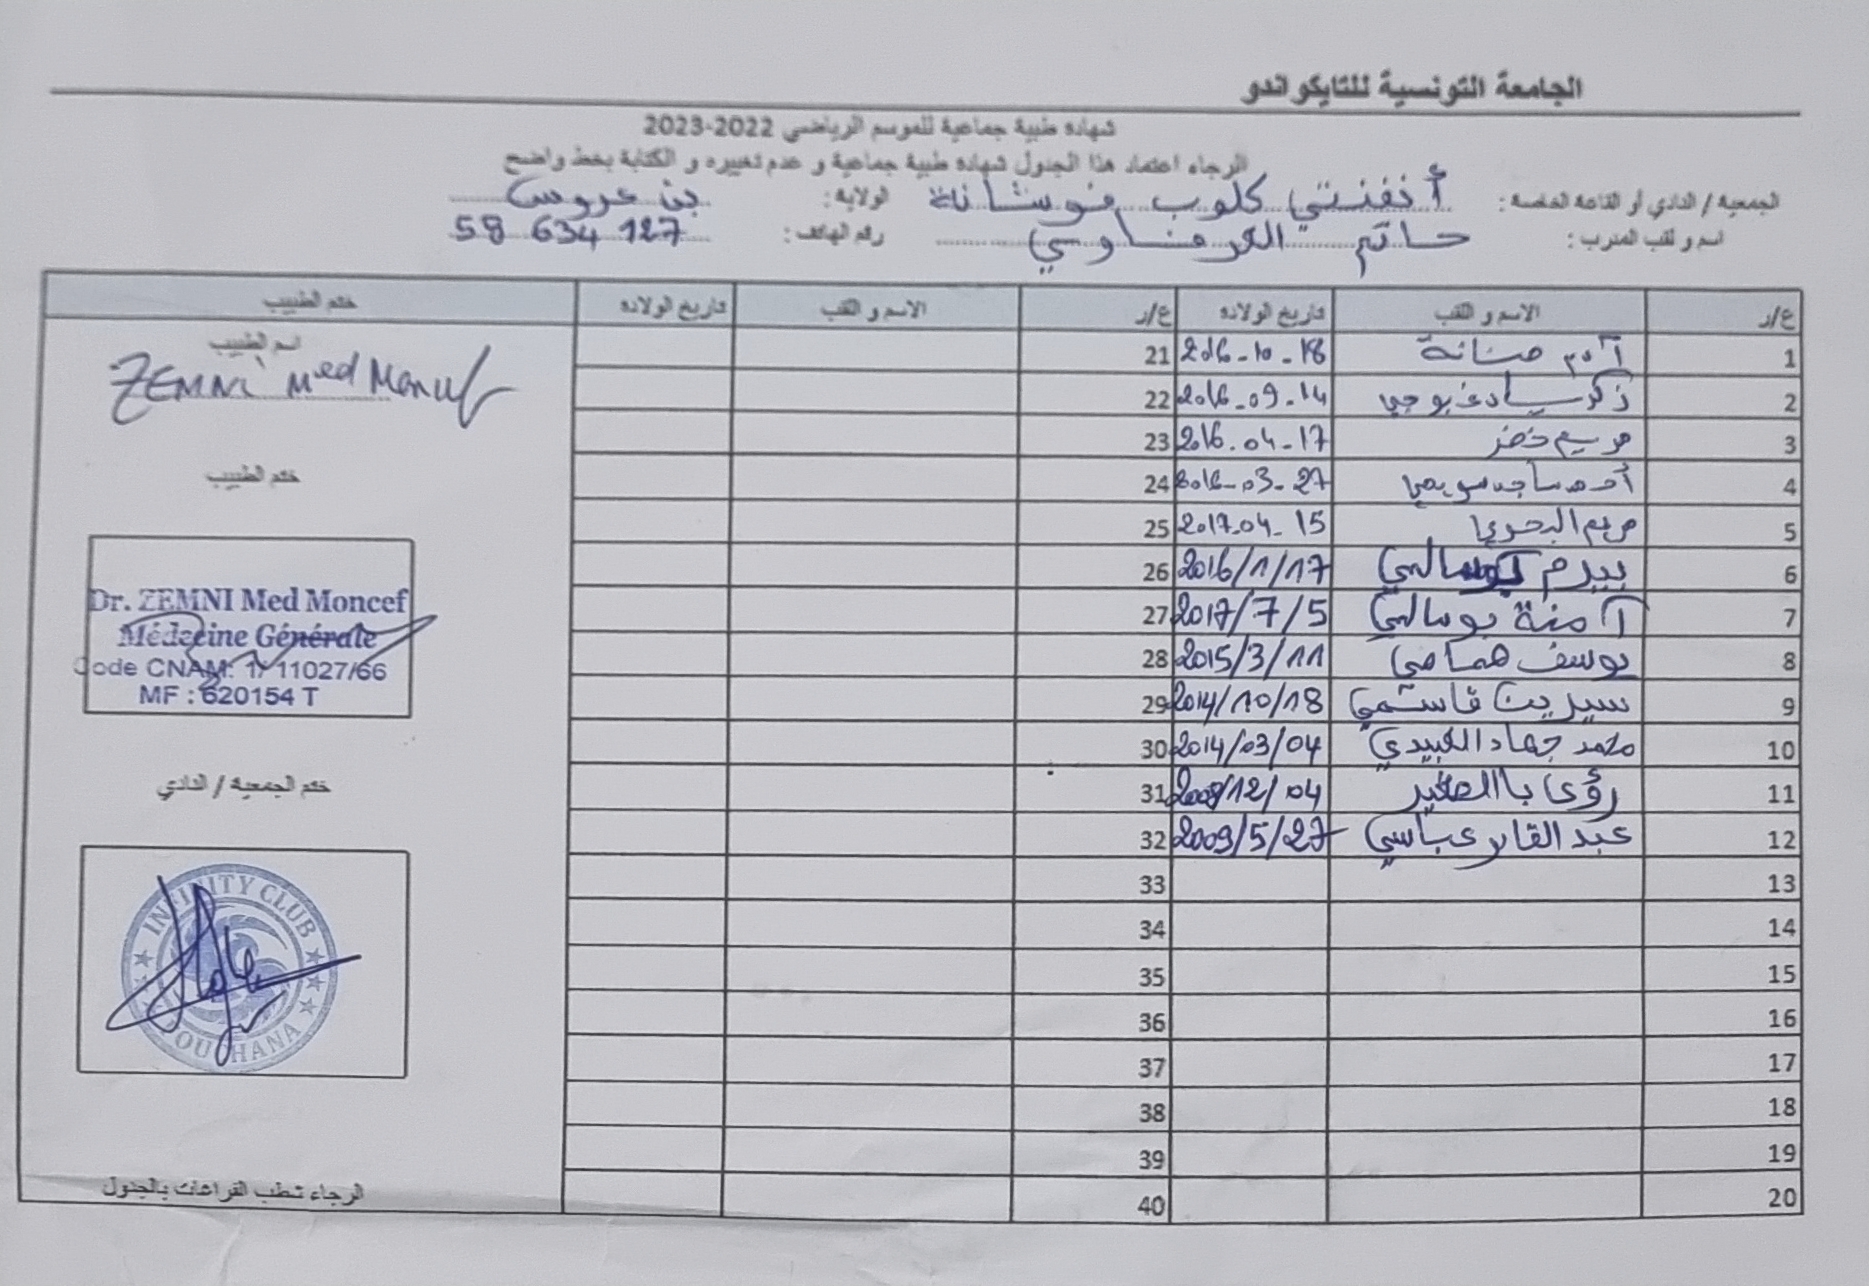 الجامعة التونسية للتايكواندو
شهادة طبية جماعية للموسم الرياضي 2022-2023
الرجاء اعتماد هذا الجدول شهادة طبية جماعية و عدم تغييره و الكتابة بخط واضح
الجمعية / النادي أو القاعة الخاصة : أنفنتي كلوب فوشانة الولاية: بن عروس
اسم و لقب المدرب : حاتم الكرفاوي رقم الهاتف : 58 634 127
ع/ر الاسم و اللقب تاريخ الولادة ع/ر الاسم و اللقب تاريخ الولادة ختم الطبيب
1 آدم 2016-10-18 21
2 زكريا دغبوجي 2016-09-14 22
3 مريم خضر 2016-04-17 23
4 أحمد ساجد سويعي 2016-03-27 24
5 مريم البحوري 2017-04-15 25
6 بيرم بوسالمي 2016/1/17 26
7 آمنة بوسالمي 2017/7/5 27
8 يوسف همامي 2015/3/11 28
9 سيرين قاسمي 2014/10/18 29
10 محمد جهاد العبيدي 2014/03/04 30
11 رؤى باالصغير 2008/12/04 31
12 عبد القادر عباسي 2009/5/27 32
13 33
14 34
15 35
16 36
17 37
18 38
19 39
20 40
اسم الطبيب
ZEMNI Med Moncef
ختم الطبيب
Dr. ZEMNI Med Moncef
Médecine Générale
Code CNAM: 1/ 11027/66
MF : 620154 T
ختم الجمعية / النادي
INFINITY CLUB
FOUCHANA
الرجاء شطب الفراغات بالجدول